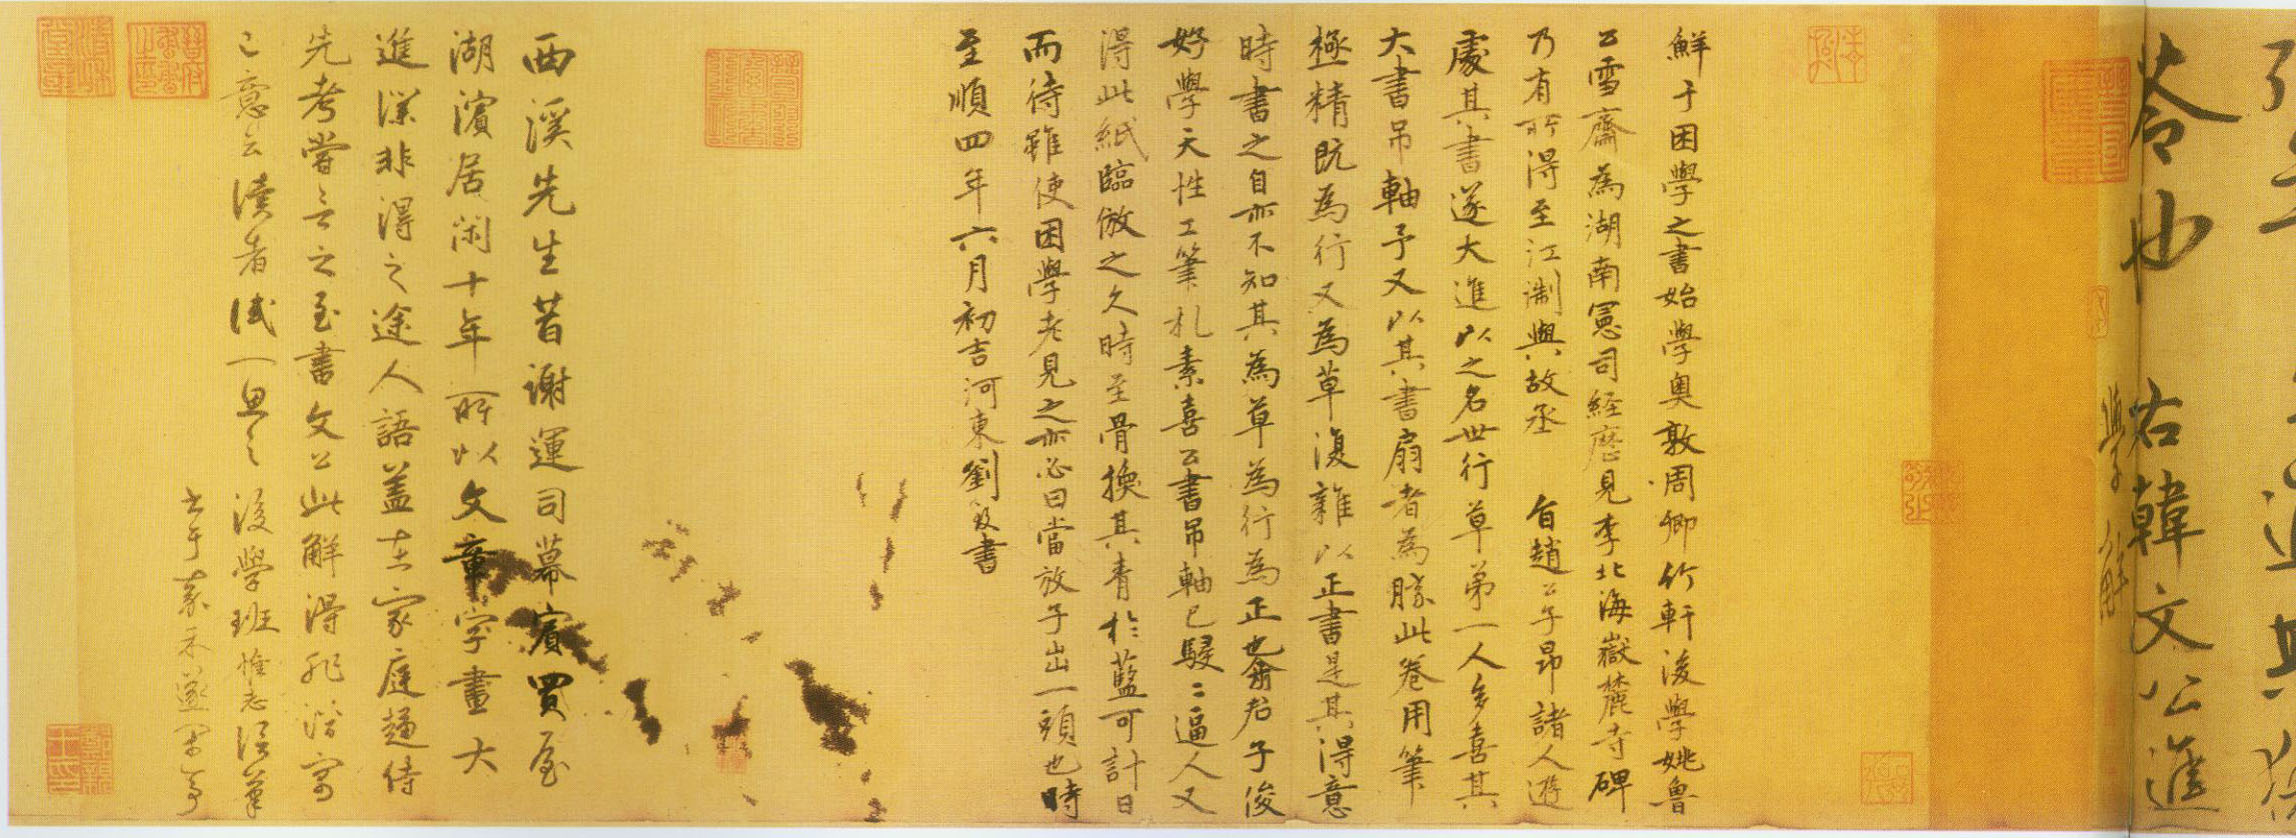 苓也 右韓文公進
學解
鮮于困學之書始學奥敦周卿竹軒後學姚魯
公雪齋為湖南憲司経歷見李北海嶽麓寺碑
乃有所得至江淛與故丞 旨趙公子昂諸人遊
處其書遂大進以之名世行草第一人多喜其
大書吊軸予又以其書扇者為勝此卷用筆
極精既為行又為草復雜以正書是其得意
時書之自亦不知其為草為行為正也俞君子俊
好學天性工筆札素喜公書吊軸已駸〻逼人又
得此紙臨倣之久時至骨換其青於藍可計日
而待雖使困學老見之亦必曰當放子出一頭也時
至順四年六月初吉河東劉致書
西溪先生昔謝運司幕賓買屋
湖濵居閑十年所以文章字畫大
進深非得之途人語盖在家庭趨侍
先考嘗言之云至書文公此解得非潛寓
〻意云讀者試一思之 後學班惟志浯筆